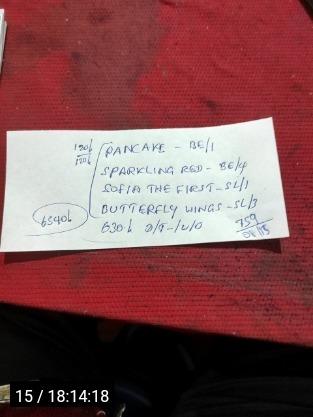 PANCAKE - BE/1
SPARKLING RED - BE/4
SOFIA THE FIRST - SL/1
BUTTERFLY WINGS - SL/3
6540b
630b
759
15 / 18:14:18